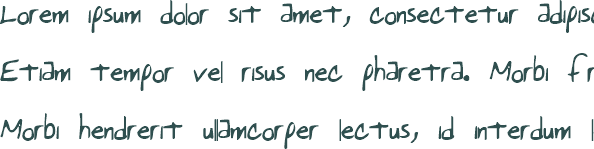 Lorem ipsum dolor sit amet, consectetur adipisc
Etiam tempor vel risus nec pharetra. Morbi fr
Morbi hendrerit ullamcorper lectus, id interdum l